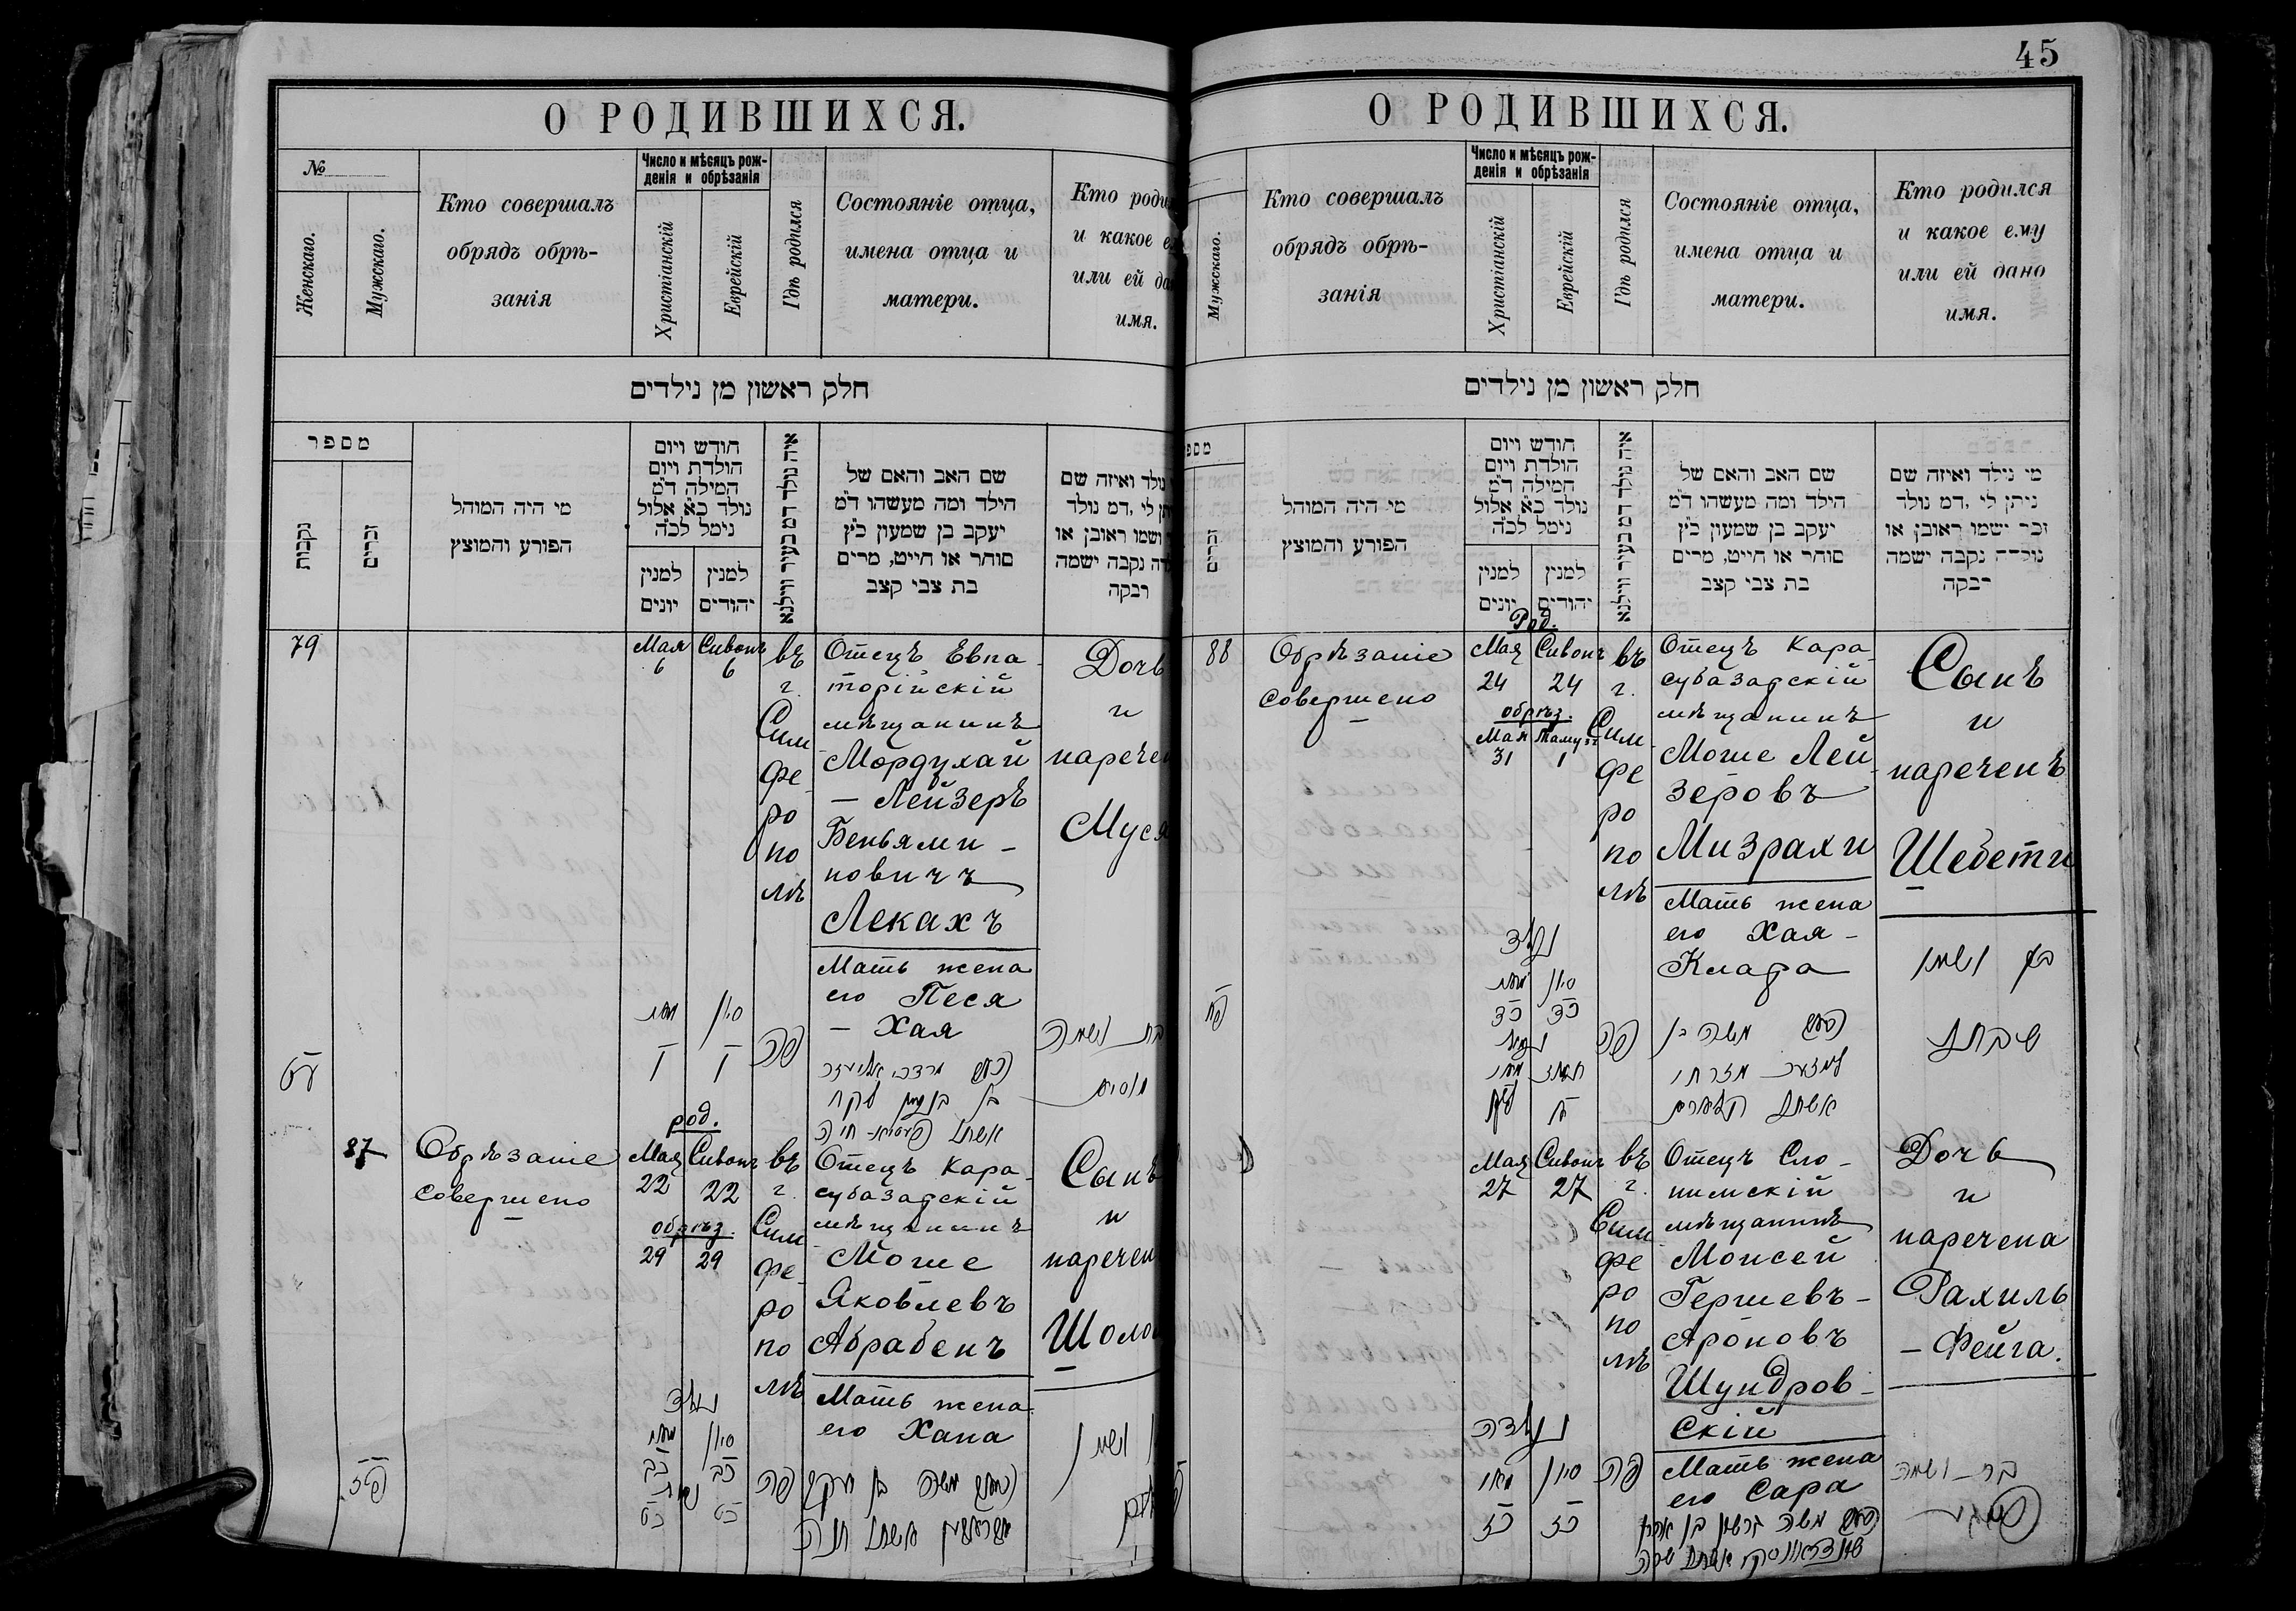 45
О РОДИВШИХСЯ.
№
Женскаго.
Мужскаго.
Кто совершалъ
обрядъ обрѣ-
занія
Число и мѣсяцъ рож-
денія и обрѣзанія
Христіанскій
Еврейскій
Гдѣ родился
Состояніе отца,
имена отца и
матери.
Кто роди
и какое е
или ей да
имя.
חלק ראשון מן נילדים
מספר
נקבות
זכרים
מי היה המוהל
הפורע והמוצץ
חודש ויום
הולדת ויום
המילה ד"מ
נולד כא אלול
נימל לכ"ה
למנין
יונים
למנין
יהודים
איה נולד דמ בעיר ווילנא
שם האב והאם של
הילד ומה מעשהו ד"מ
יעקב בן שמעון כ"ץ
סוחר או חייט, מרים
בת צבי קצב
נולד ואיזה שם
תן לי ,דמ נולד
ושמו ראובן או
דה נקבה ישמה
רבקה
79
Мая
6
Сивонъ
6
въ
г.
Сим
фе
ро
по
лѣ
Отецъ Евпа
торійскій
мѣщанинъ
Мордухай
— Лейзеръ
Беньями -
новичъ
Лекахъ
Мать жена
его Песя
— Хая
Дочь
и
наречен
Муся
סיון
ו
ו
פה
בת ושמה
עט
87
Обрѣзаніе
совершено
род.
Мая
22
Сивонъ
22
обрѣз.
29
29
въ
г.
Сим
фе-
ро
по
лѣ
Отецъ Кара
субазарскій
мѣщанинъ
Моше
Яковлевъ
Абрабенъ
Мать жена
его Хана
Сынъ
и
наречен
Шоло
נולד
סיון
כב
כב
כט
כט
פה
פז
О РОДИВШИХСЯ.
Мужскаго.
Кто совершалъ
обрядъ обрѣ-
занія
Число и мѣсяцъ рож-
денія и обрѣзанія
Христіанскій
Еврейскій
Гдѣ родился
Состояніе отца,
имена отца и
матери.
Кто родился
и какое ему
или ей дано
имя.
חלק ראשון מן נילדים
מספ
זכרים
מי היה המוהל
הפורע והמוצץ
חודש ויום
הולדת ויום
המילה ד"מ
נולד כא אלול
נימל לכ"ה
למנין
יונים
למנין
יהודים
איה נולד דמ בעיר ווילנא
שם האב והאם של
הילד ומה מעשהו ד"מ
יעקב בן שמעון כ"ץ
סוחר או חייט, מרים
בת צבי קצב
מי נולד ואיזה שם
ניתן לי ,דמ נולד
זכר ושמו ראובן או
נולדה נקבה ישמה
רבקה
88
Обрѣзаніе
совершено
Род.
Мая
24
Сивонъ
24
обрѣз.
Мая
31
Тамузъ
1
въ
г.
Сим
фе
ро
по
лѣ
Отецъ Кара
субазарскій
мѣщанинъ
Моше Лей
зеровъ
Мизрахи
Мать жена
его Хая -
Клара
Сынъ
и
нареченъ
Шебети
נולד
סיון
כד
כד
פה
משה בן
מזרחי
בן ושמו
שבתי
פח
Мая
27
Сивонъ
27
въ
г.
Сим
фе
ро
по
лѣ
Отецъ Сло -
нимскій
мѣщанинъ
Моисей
Гершевъ -
Ароновъ
Шундров -
скій
Мать жена
его Сара
Дочь
и
наречена
Рахиль
— Фейга.
נולדה
סיון
כז
כז
פה
משה הרשין בן אהרן
אשתו שרה
בת ושמה